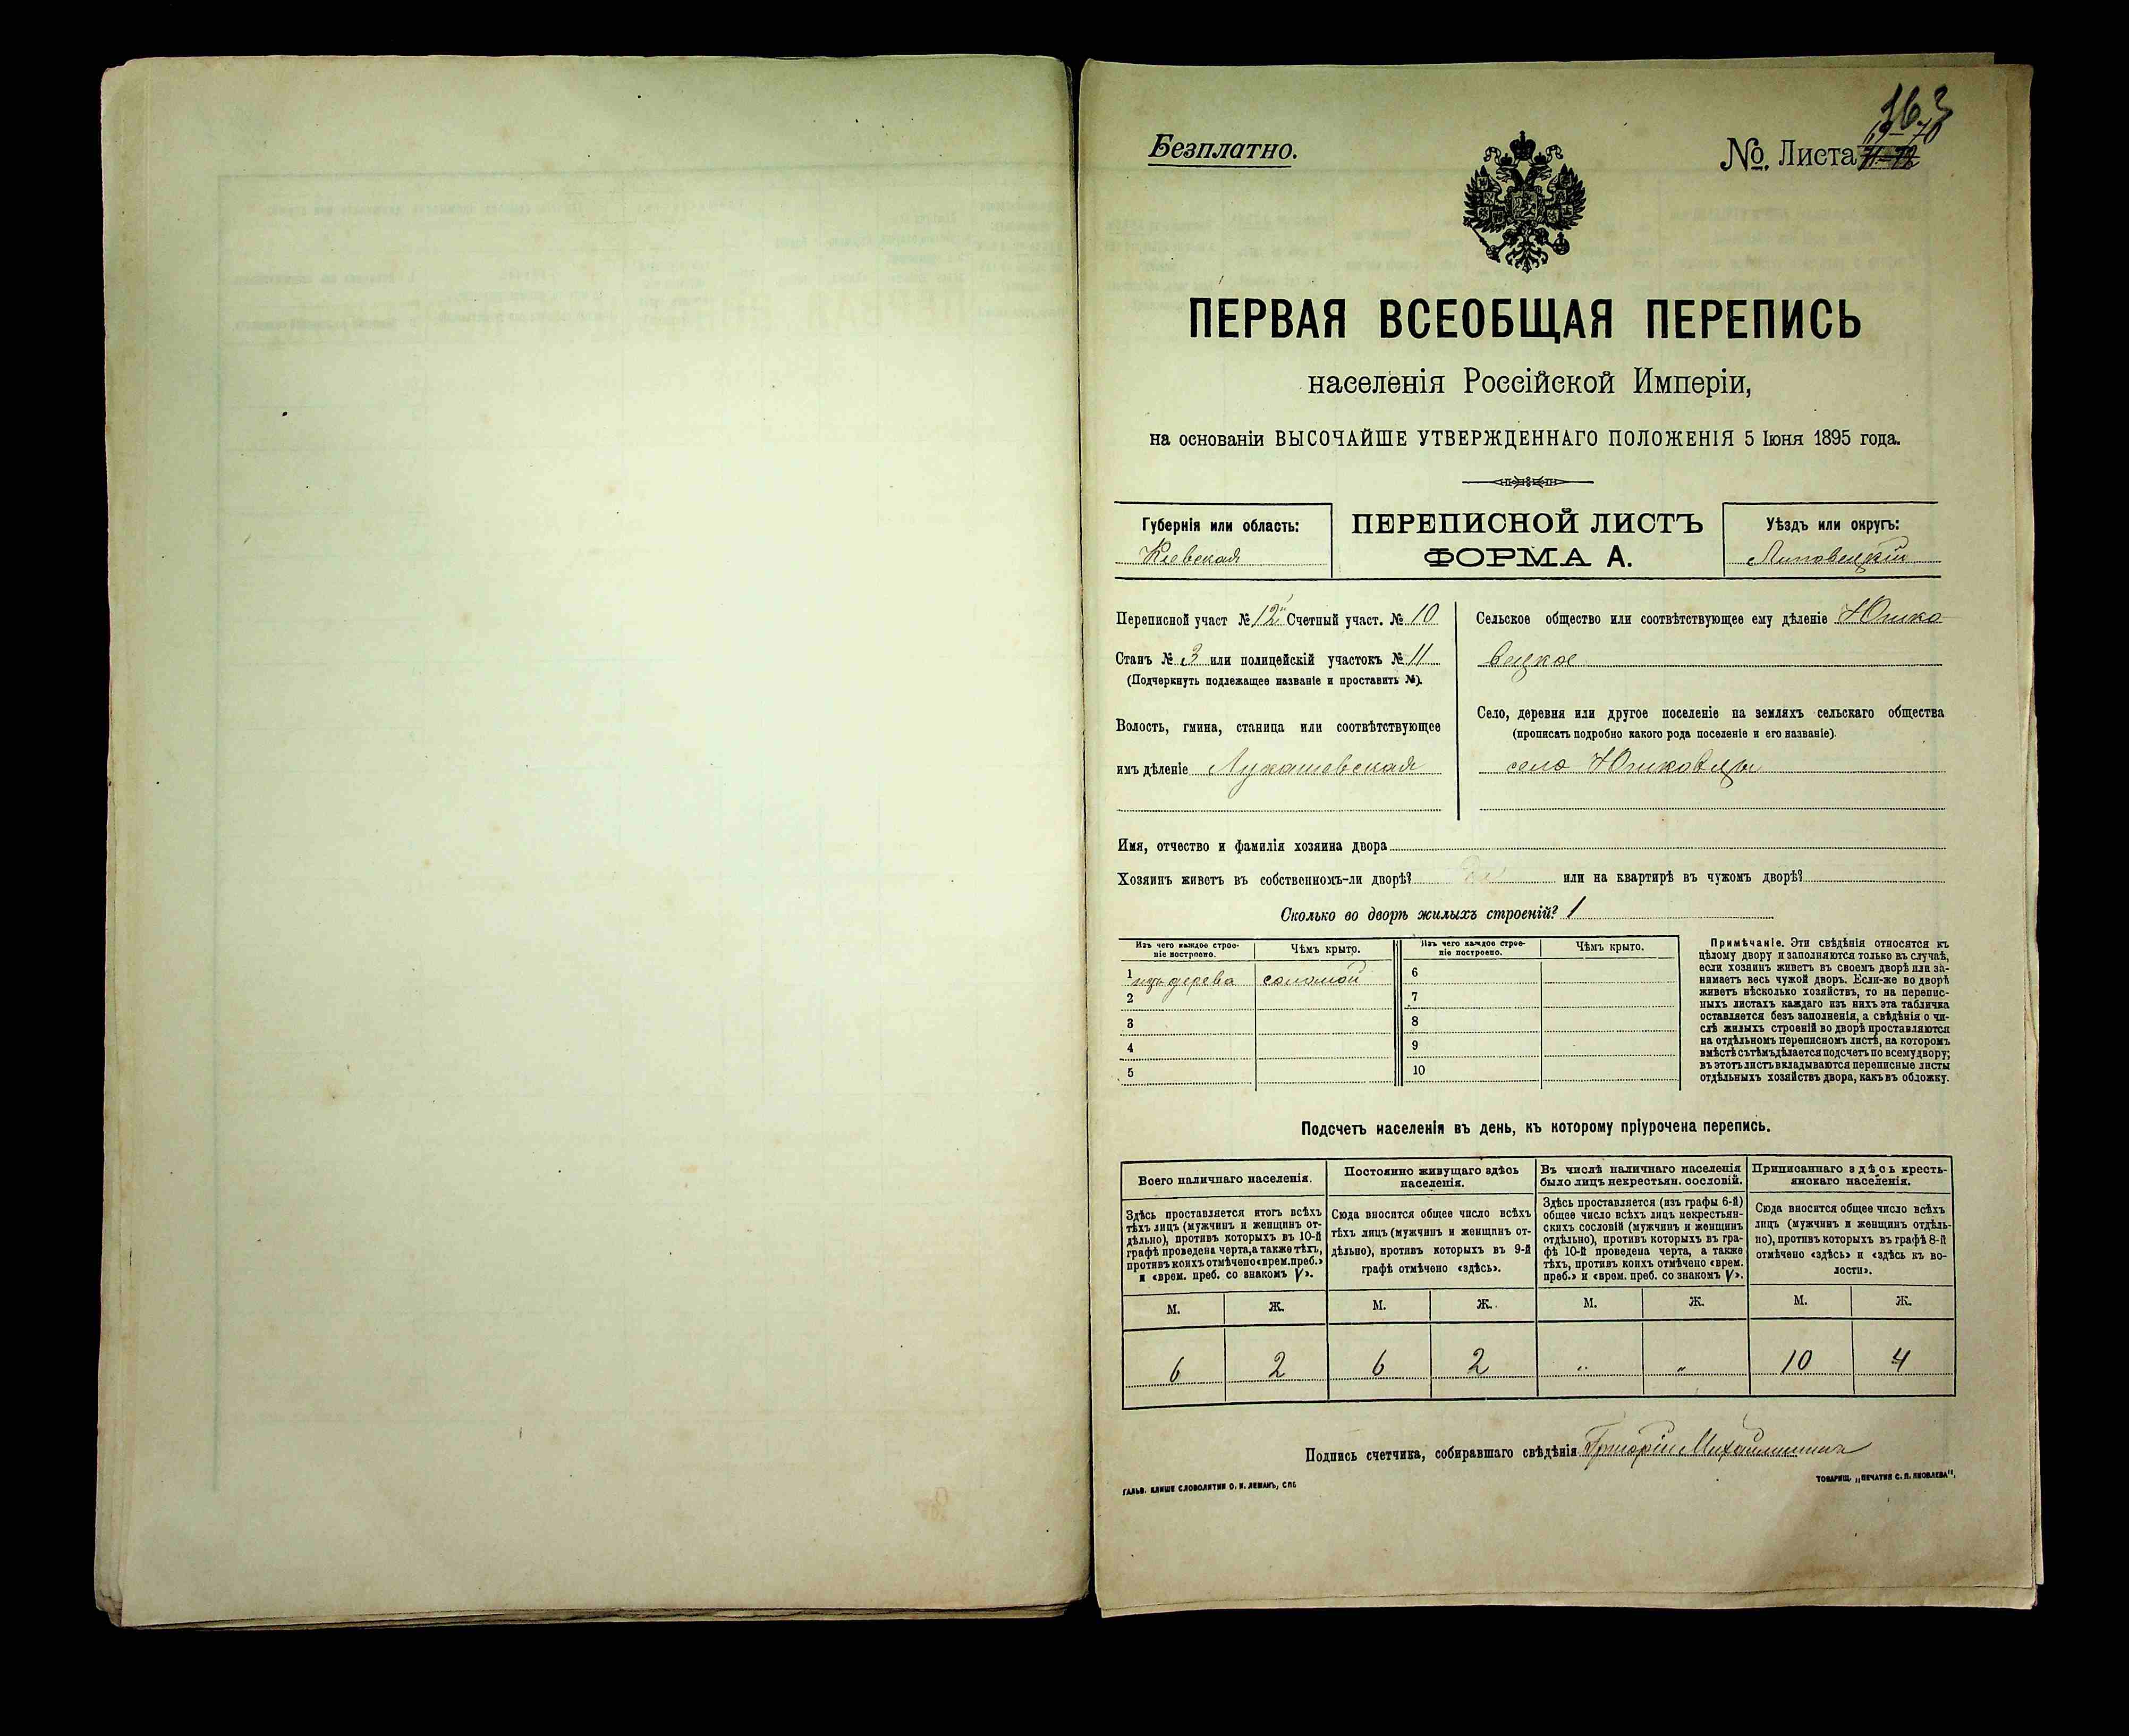 163
Безплатно.
69-70
№ Листа
ПЕРВАЯ ВСЕОБЩАЯ ПЕРЕПИСЬ
населенія Россійской Имперіи,
на основаніи ВЫСОЧАЙШЕ УТВЕРЖДЕННАГО ПОЛОЖЕНІЯ 5 Іюня 1895 года.
Губернія или область:
Кіевская
ПЕРЕПИСНОЙ ЛИСТЪ
ФОРМА А.
Уѣздъ или округъ:
Липовецкій
Переписной участ № 12 Счетный участ. № 10
Станъ № 3 или полицейскій участокъ № 11
(Подчеркнуть подлежащее названіе и проставить №).
Волость, гмина, станица или соотвѣтствующее
имъ дѣленіе Лукашевская
Сельское общество или соотвѣтствующее ему дѣленіе Юшко-
вецкое
Село, деревня или другое поселеніе на земляхъ сельскаго общества
(прописать подробно какого рода поселеніе и его названіе).
село Юшковцы
Имя, отчество и фамилія хозяина двора
Хозяинъ живетъ въ собственномъ-ли дворѣ? да или на квартирѣ въ чужомъ дворѣ?
Сколько во дворѣ жилыхъ строеній? 1
Изъ чего каждое строе-
ніе построено.
Чѣмъ крыто.
1 изъ дерева соломой
2
3
4
5
Изъ чего каждое строе-
ніе построено.
Чѣмъ крыто.
6
7
8
9
10
Примѣчаніе. Эти свѣдѣнія относятся къ
цѣлому двору и заполняются только въ случаѣ,
если хозяинъ живетъ въ своемъ дворѣ или за-
нимаетъ весь чужой дворъ. Если-же во дворѣ
живетъ нѣсколько хозяйствъ, то на перепис-
ныхъ листахъ каждаго изъ нихъ эта табличка
оставляется безъ заполненія, а свѣдѣнія о чи-
слѣ жилыхъ строеній во дворѣ проставляются
на отдѣльномъ переписномъ листѣ, на которомъ
вмѣстѣ съ тѣмъ дѣлается подсчетъ по всему двору;
въ этотъ листъ вкладываются переписные листы
отдѣльныхъ хозяйствъ двора, какъ въ обложку.
Подсчетъ населенія въ день, къ которому пріурочена перепись.
Всего наличнаго населенія.
Здѣсь проставляется итогъ всѣхъ
тѣхъ лицъ (мужчинъ и женщинъ от-
дѣльно), противъ которыхъ въ 10-й
графѣ проведена черта, а также тѣхъ,
противъ коихъ отмѣчено «врем. преб.»
и «врем. преб. со знакомъ V».
Постоянно живущаго здѣсь
населенія.
Сюда вносится общее число всѣхъ
тѣхъ лицъ (мужчинъ и женщинъ от-
дѣльно), противъ которыхъ въ 9-й
графѣ отмѣчено «здѣсь».
Въ числѣ наличнаго населенія
было лицъ некрестьян. сословій.
Здѣсь проставляется (изъ графы 6-й)
общее число всѣхъ лицъ некрестьян-
скихъ сословій (мужчинъ и женщинъ
отдѣльно), противъ которыхъ въ гра-
фѣ 10-й проведена черта, а также
тѣхъ, противъ коихъ отмѣчено «врем.
преб.» и «врем. преб. со знакомъ V».
Приписаннаго здѣсь кресть-
янскаго населенія.
Сюда вносится общее число всѣхъ
лицъ (мужчинъ и женщинъ отдѣль-
но), противъ которыхъ въ графѣ 8-й
отмѣчено «здѣсь» и «здѣсь къ во-
лости».
М. Ж. М. Ж. М. Ж. М. Ж.
6 2 6 2 " " 10 4
Подпись счетчика, собиравшаго свѣдѣнія Григорій
ГАЛЬВ. КЛИШЕ СЛОВОЛИТНИ О. И. ЛЕМАНЪ, СПБ.
ТОВАРИЩ. „ПЕЧАТНЯ С. П. ЯКОВЛЕВА“.